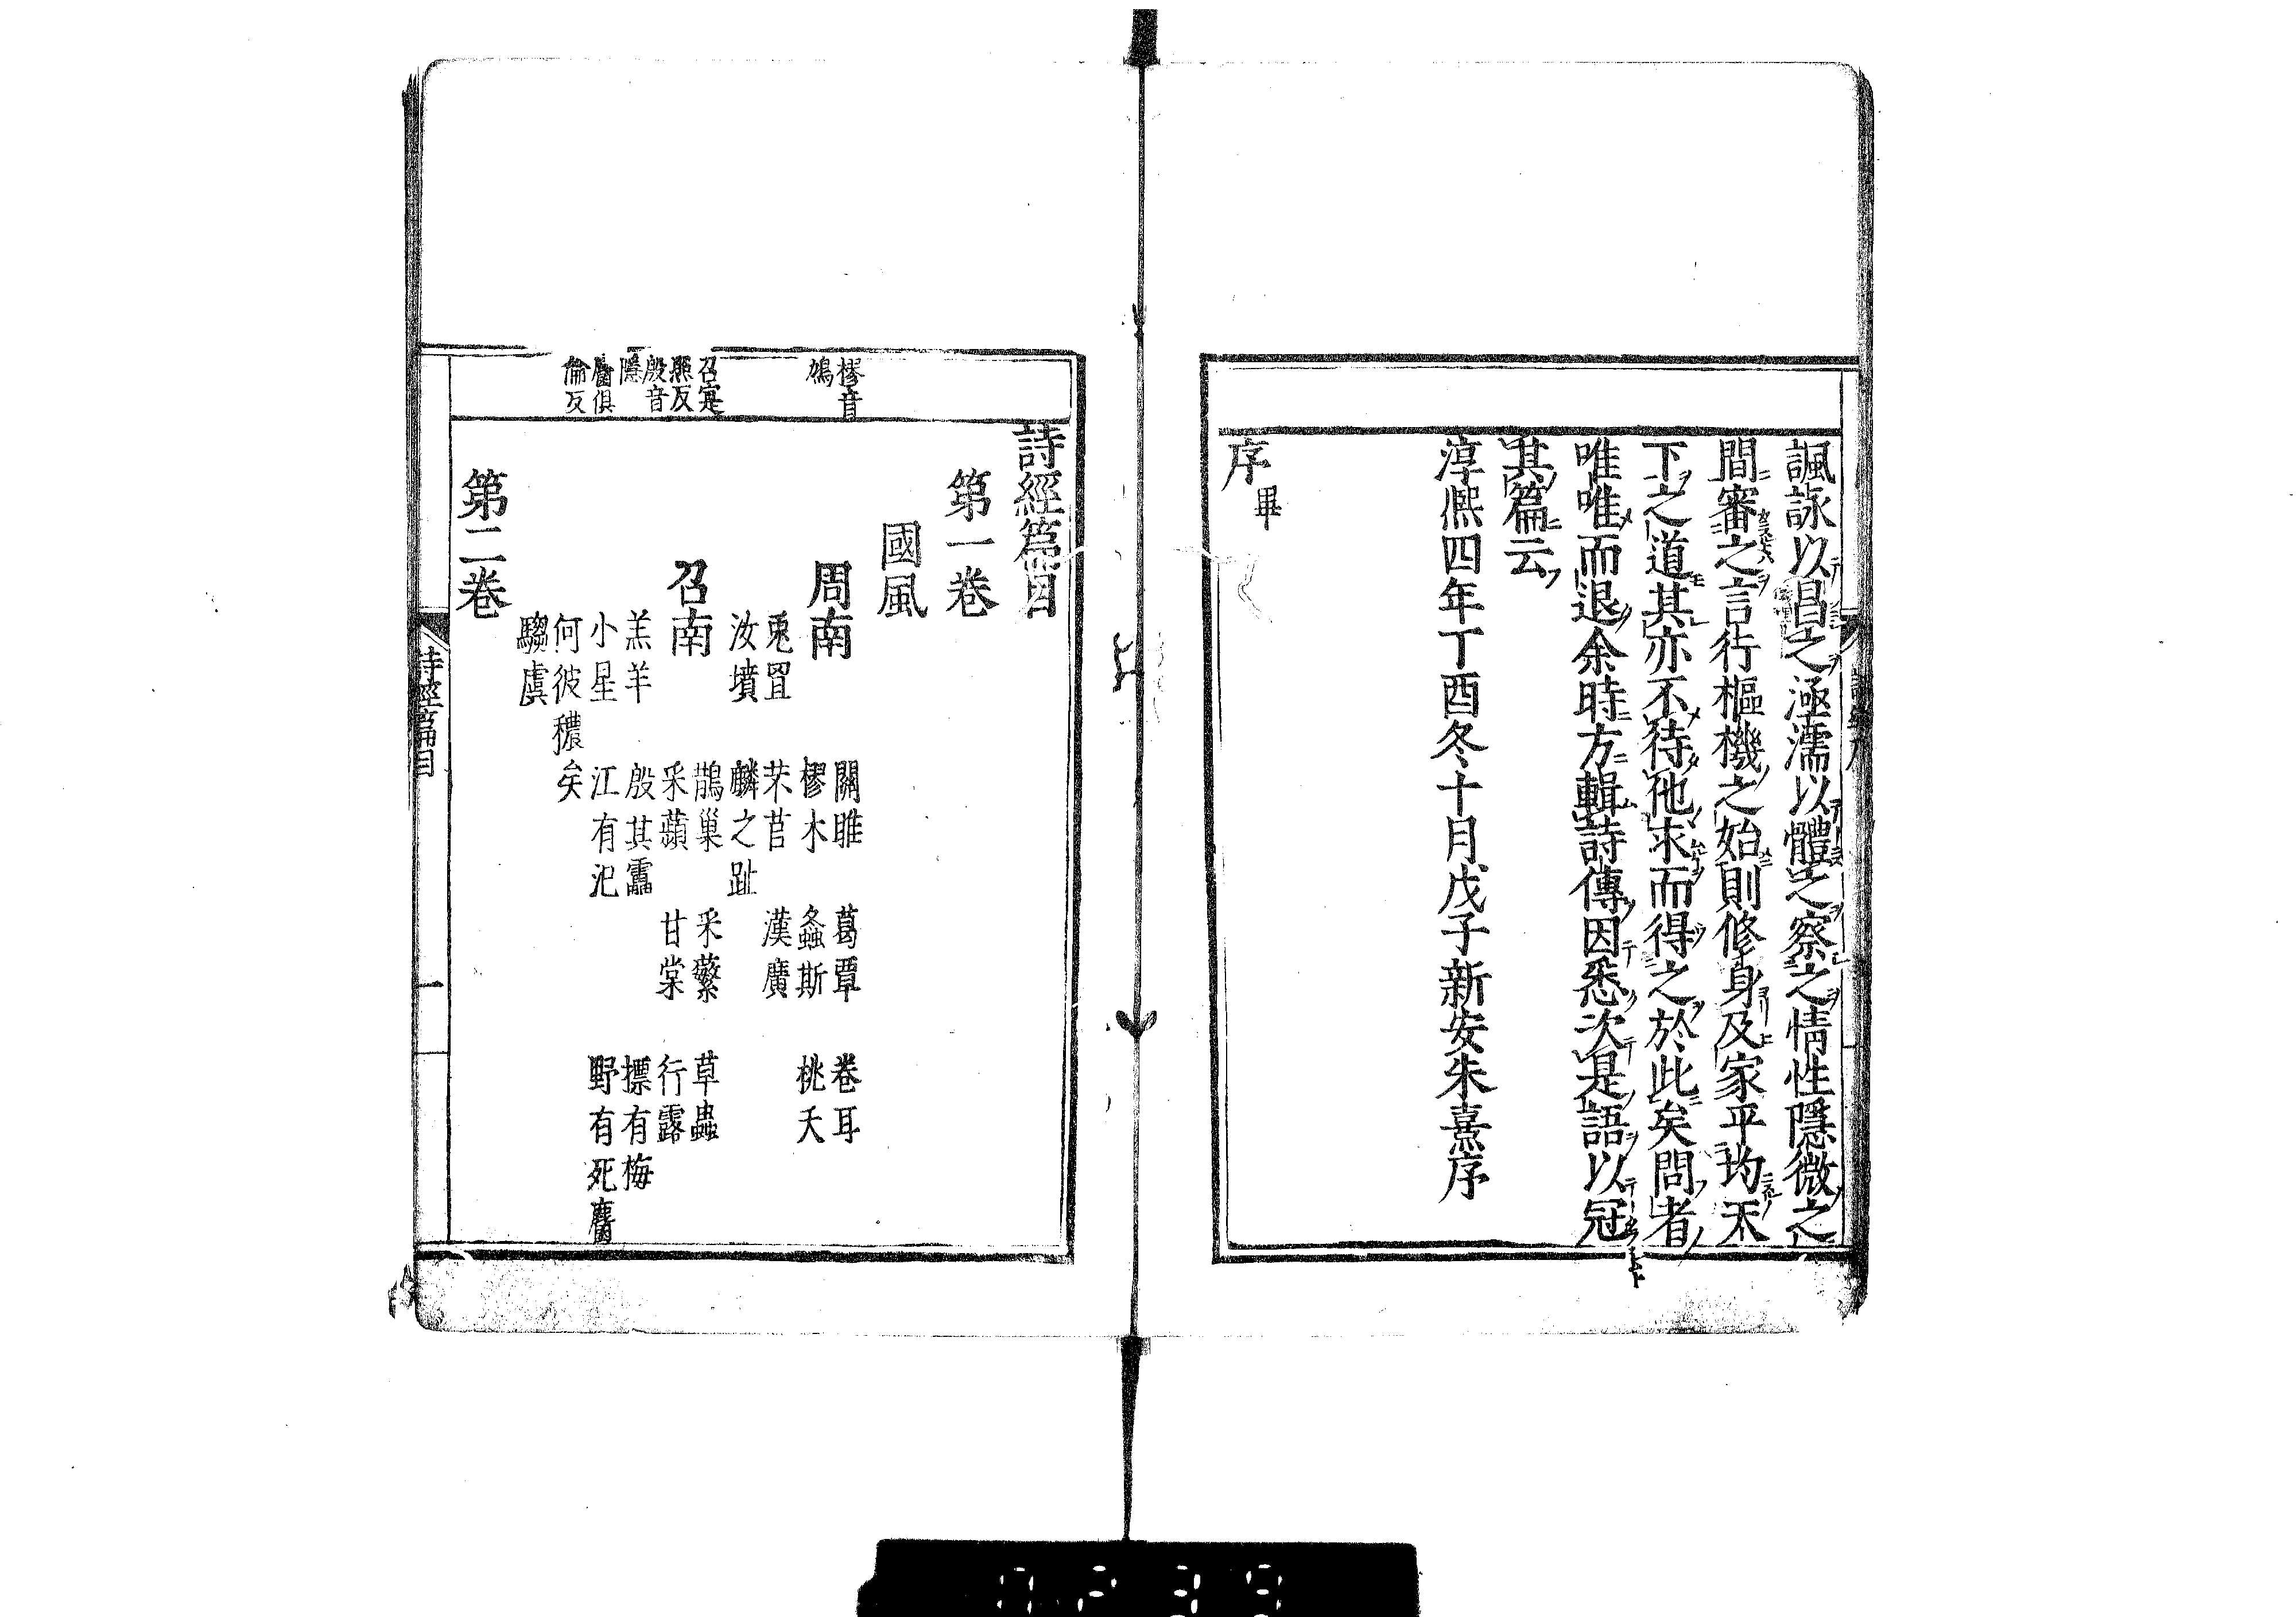 諷詠以昌之涵濡以體之察之情性隱微之
間審之言行樞機之始則修身及家平均天
下之道其亦不待他求而得之於此矣問者
唯唯而退余時方輯詩傳因悉次是語以冠
其篇云
淳熈四年丁酉冬十月戊子新安朱熹序
序畢
樛音
鳩
召寔
照反
殷音
隱
麕俱
倫反
詩經篇目
第一卷
國風
周南 關雎 葛覃 卷耳
樛木 螽斯 桃夭
兎罝 芣苢 漢廣
汝墳 麟之趾
召南 鵲巢 采蘩 草蟲
采蘋 甘棠 行露
羔羊 殷其靁 摽有梅
小星 江有汜 野有死麕
何彼穠矣
騶虞
第二卷
詩經篇目 一